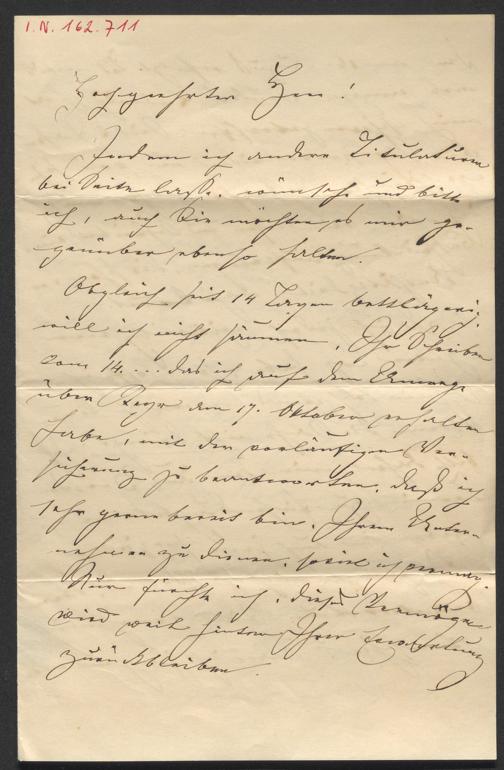 I.N. 162.711
Hochgeehrter Herr!
Indem ich andere Titulaturen
bei Seite lasse, wünsche und bitte
ich, auch Sie möchten es mir ge-
genüber ebenso halten.
Obgleich seit 14 Tagen bettlägerig,
will ich nicht säumen, Ihr Schreiben
vom 14. ... das ich auf dem Umwege
über den 17. Oktober erhalten
habe, mit der vorläufigen Ver-
sicherung zu beantworten, daß ich
sehr gerne bereit bin, Ihrem Unter-
nehmen zu dienen, soviel ich vermag.
Nur fürchte ich, dieses Vermögen
wird weit hinter Ihrer Erwartung
zurückbleiben.